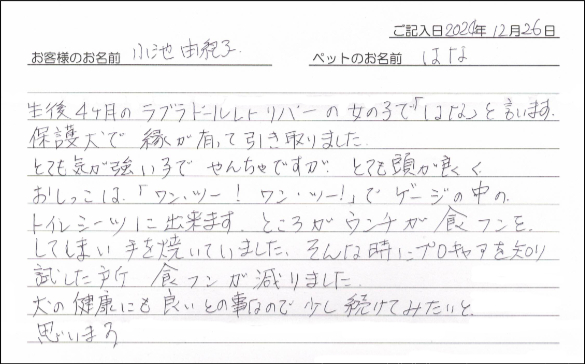 ご記入日2024年12月26日
お客様のお名前 小池 由紀子 ペットのお名前 はな
生後4ヶ月のラブラドールレトリバーの女の子で「はな」と言います。
保護犬で縁が有って引き取りました。
とても気が強い子でやんちゃですが、とても頭が良く
おしっこは「ワン・ツー！ワン・ツー！」でゲージの中の
トイレシーツに出来ます。ところがウンチが食フンを
してしまい手を焼いていました。そんな時にプロキャアを知り
試した所 食フンが減りました。
犬の健康にも良いとの事なので少し続けてみたいと
思います